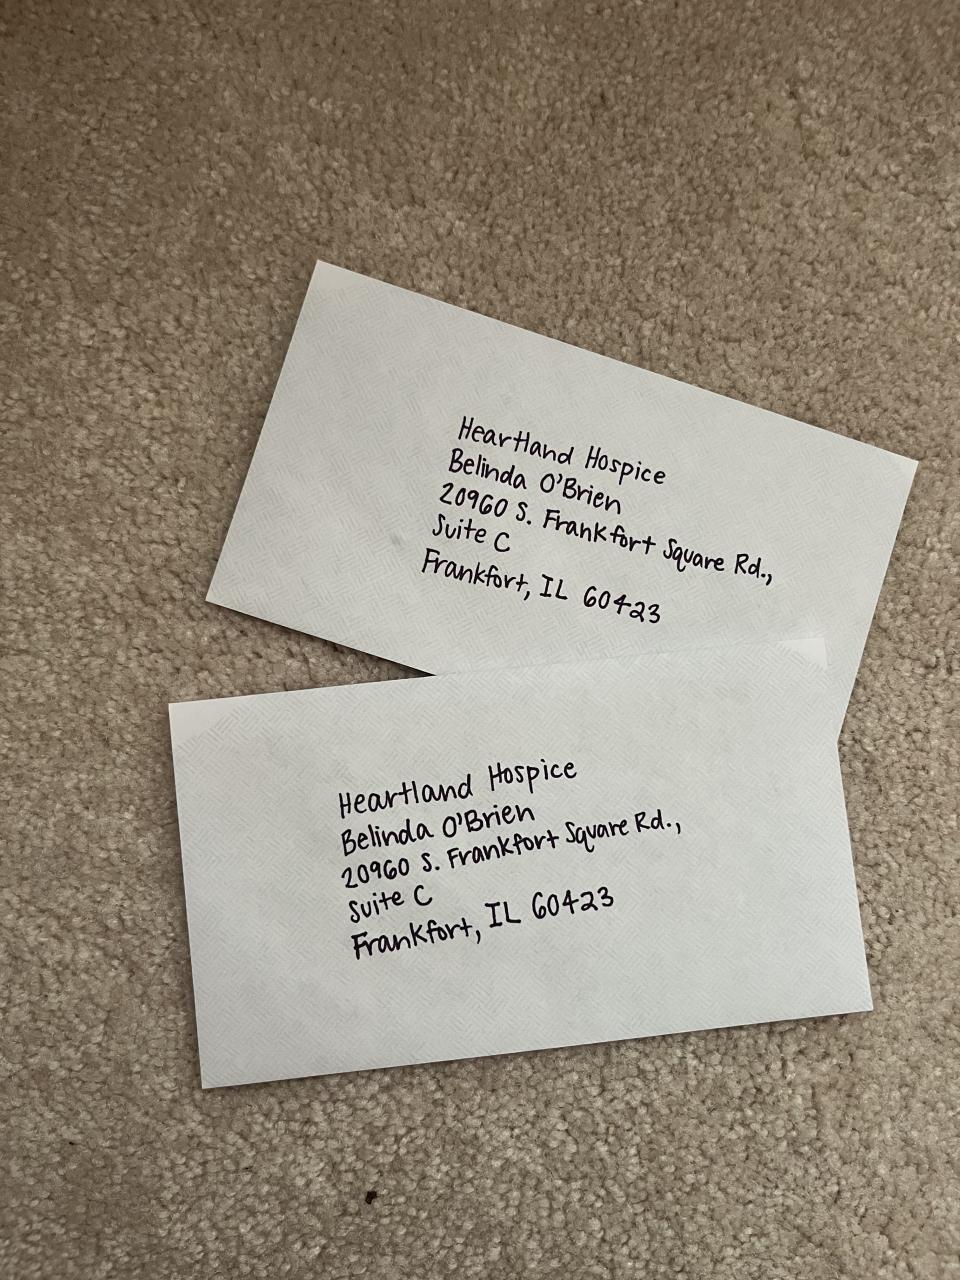 Heartland Hospice
Belinda O'Brien
20960 S. Frankfort Square Rd.,
Suite C
Frankfort, IL 60423
Heartland Hospice
Belinda O'Brien
20960 S. Frankfort Square Rd.,
Suite C
Frankfort, IL 60423